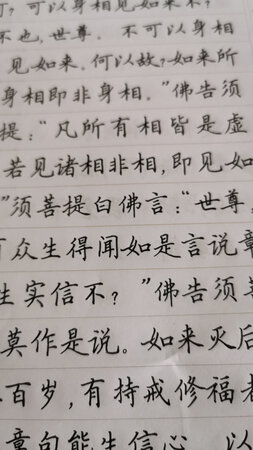 可以身相见如来不?
不也,世尊。不可以身相
见如来。何以故?如来所
身相即非身相。”佛告须
提:“凡所有相皆是虚
若见诸相非相,即见如
”须菩提白佛言:“世尊,
众生得闻如是言说章
生实信不?”佛告须菩
莫作是说。如来灭后
百岁,有持戒修福者
章句能生信心,以